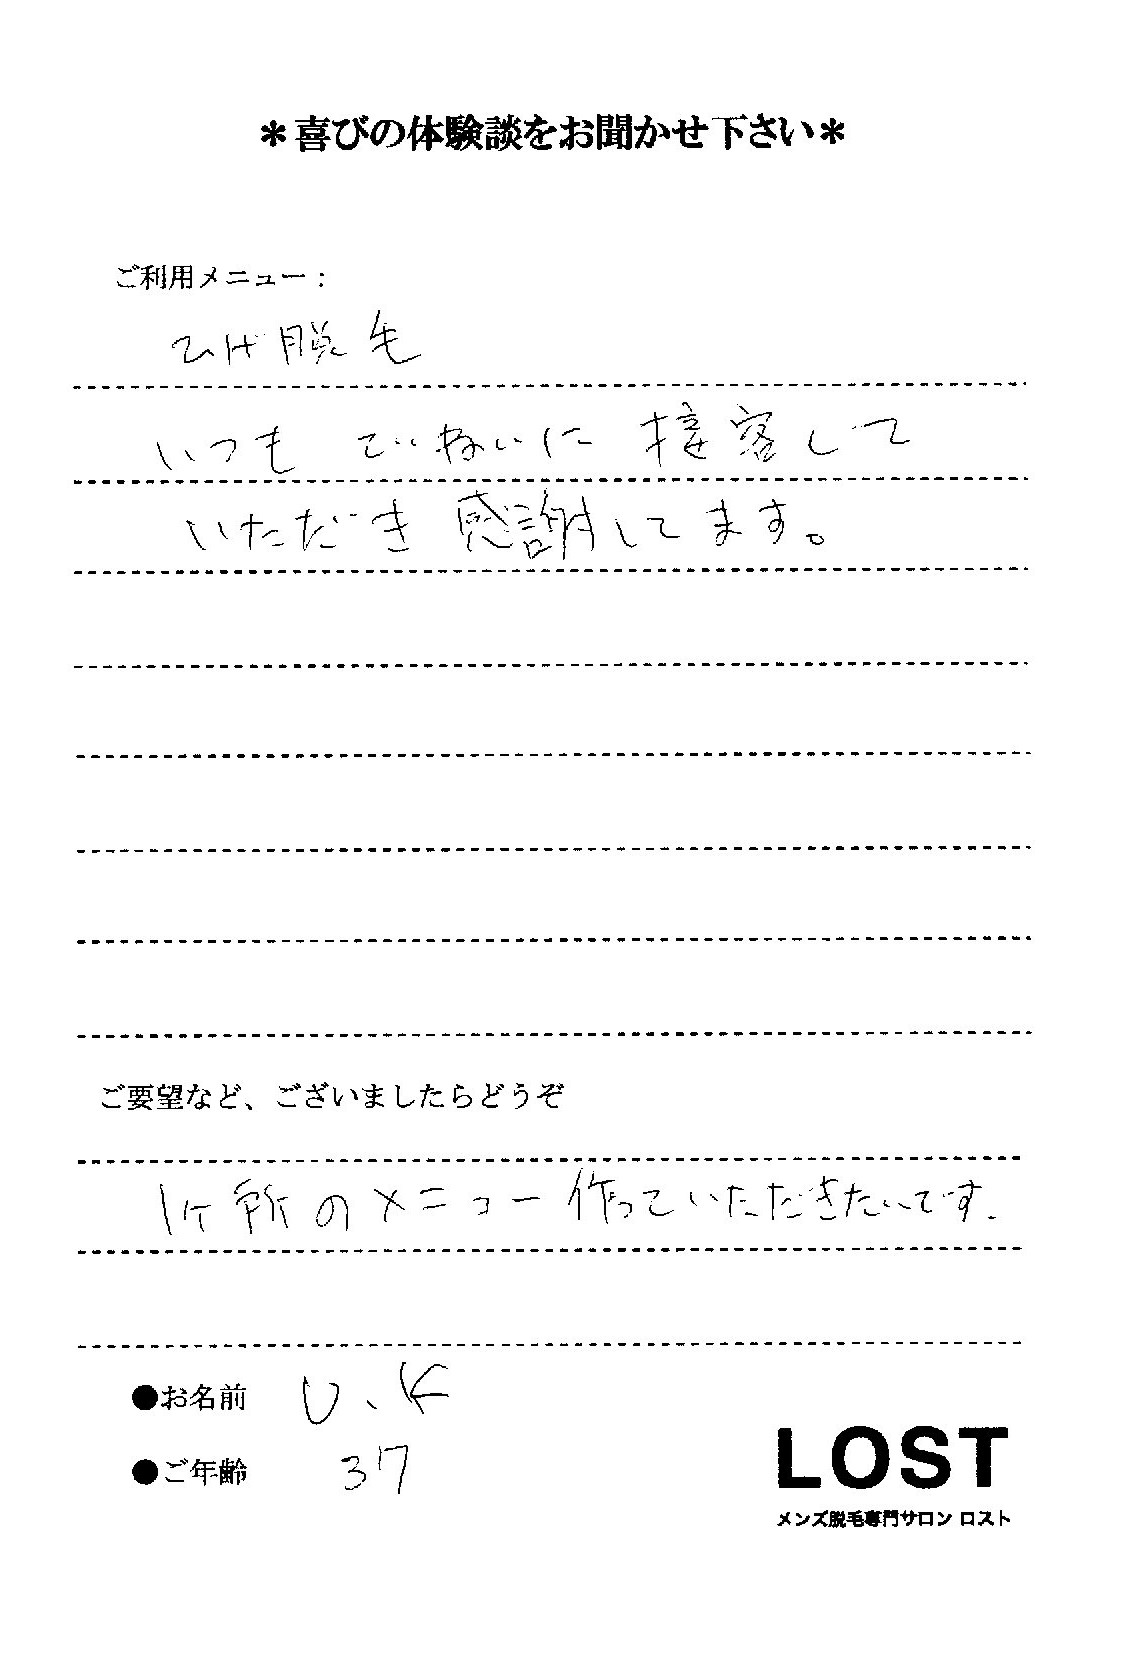 ＊喜びの体験談をお聞かせ下さい＊
ご利用メニュー：
ひげ脱毛
いつも ていねいに 接客して
いただき 感謝してます。
ご要望など、ございましたらどうぞ
1ヶ所のメニュー作っていただきたいです.
●お名前 U、K
●ご年齢 37
LOST
メンズ脱毛専門サロン ロスト